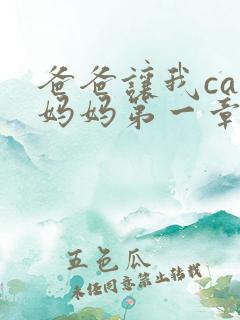 爸爸讓我ca
妈妈第一章
五色瓜
未经同意禁止转载